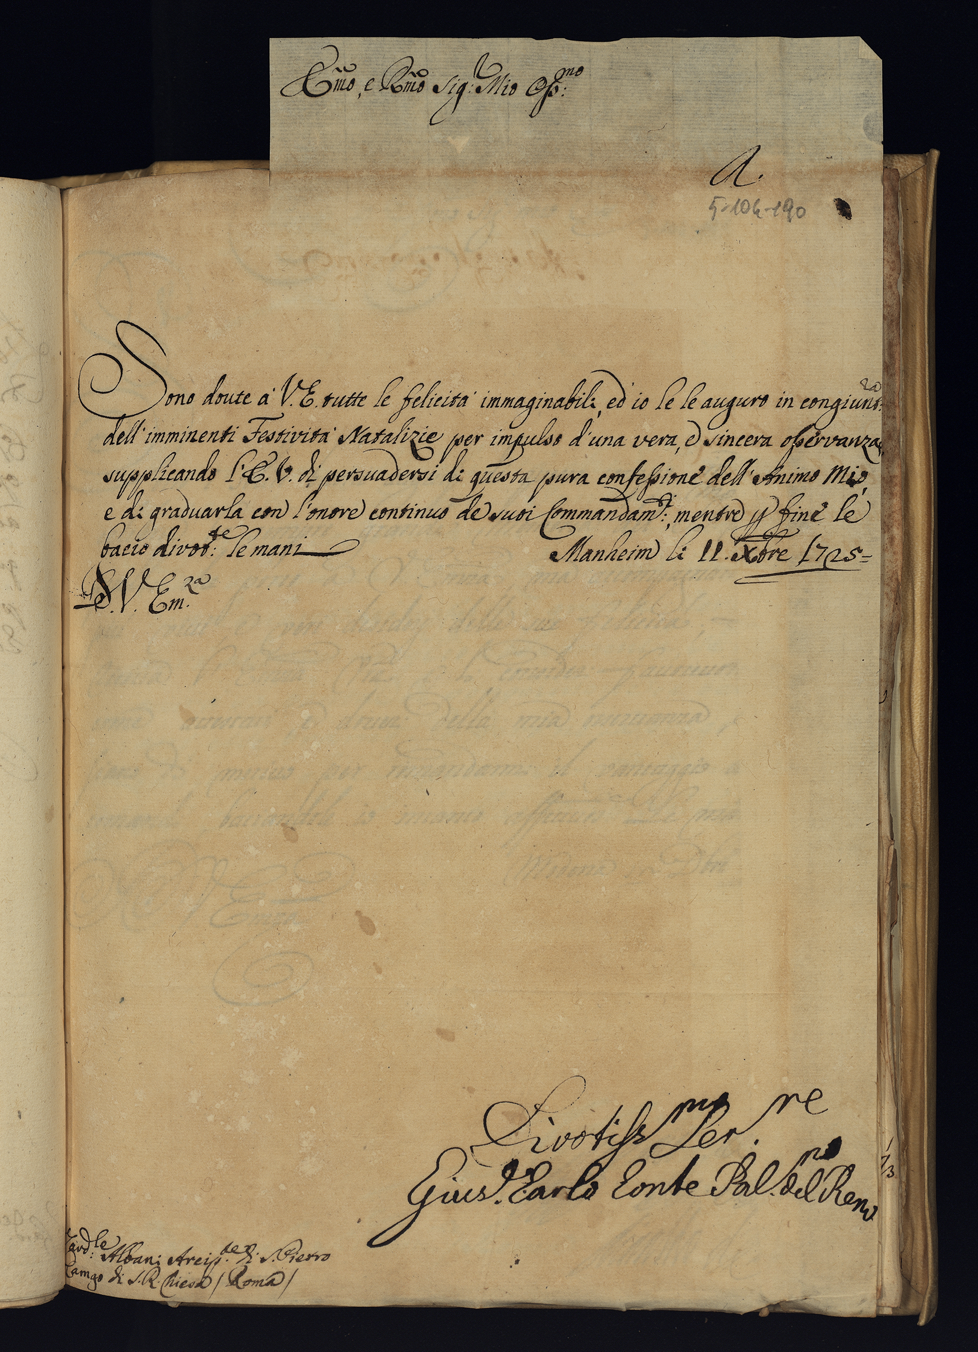 Em̃o, e Rm̃o Sig.r Mio Oss.mo
A.
5-104-190
Sono doute a' V.E. tutte le felicità immaginabili, ed io le le auguro in congiunt.ra
dell' imminenti Festività Natalizie per impulso d'una vera, e sincera osservanza,
supplicando l'E.V. di persuadersi di questa pura confessione dell' Animo Mio,
e di graduarla con l'onore continuo de suoi Commandam.ti; mentre p fine le
bacio divot.te le mani
Manheim li 11. Xbre 1725=
D. V. Em.za
Divotiss.mo Ser.re
Gius. Carlo Conte Pal.no del Reno
Card.le Albani Arcip.te di S. Pietro
Camgo di S. R. Chiesa / Roma /
73